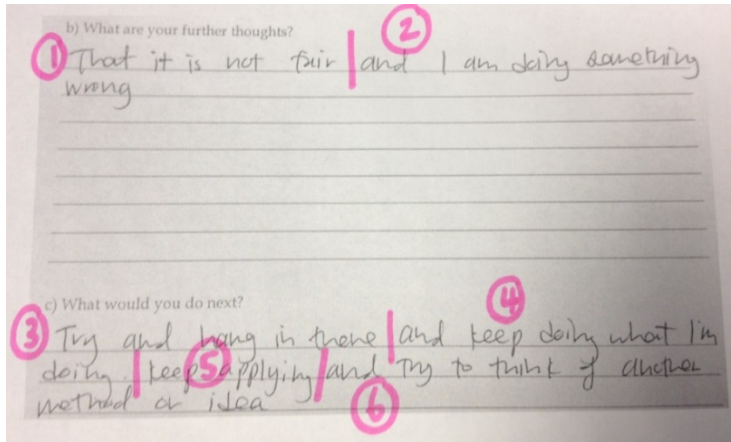 b) What are your further thoughts?
②
① That it is not fair | and I am doing something
wrong
c) What would you do next?
④
③ Try and hang in there | and keep doing what I'm
doing. | keep ⑤ applying | and Try to think of another
method or idea
⑥